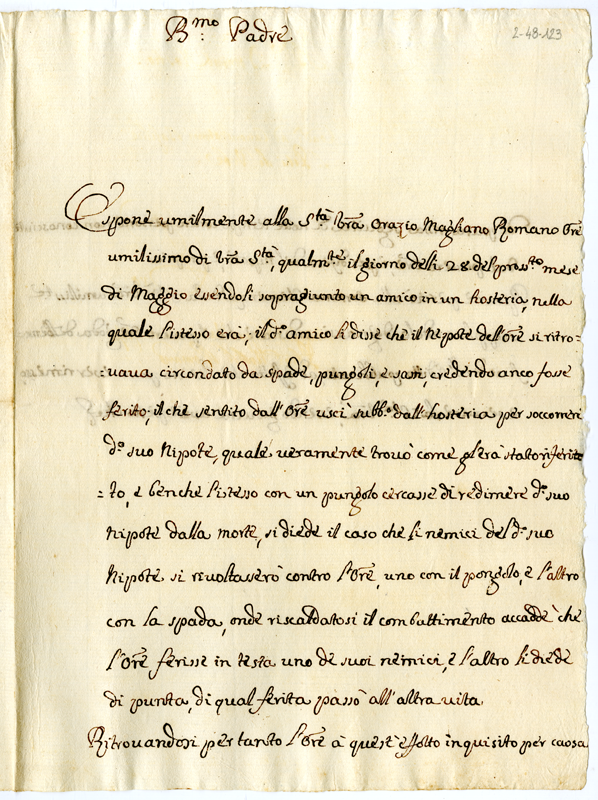 B.mo Padre
2-48-123
Espone umilmente alla S.tà Vra Orazio Magliano Romano Ore
umilissimo di Vra S.tà, qualm.te il giorno deli 28 del pros.to mese
di Maggio essendoli sopragiunto un amico in un hosteria, nella
quale l'istesso era, il d.o amico li disse che il Nipote dell'Ore si ritro=
=uaua circondato da spade, pungoli, e sassi, credendo anco fosse
ferito, il che sentito dall'Ore uscì subb.o dall'hosteria per soccorrer
d.o suo Nipote, quale ueramente trouò come gl'era stato riferito
=to, e benche l'istesso con un pungolo cercasse di redimere d.o suo
Nipote dalla morte, si diede il caso che li nemici del d.o suo
Nipote si riuoltassero contro l'Ore, uno con il pongolo, e l'altro
con la spada, onde riscaldatosi il combattimento accadde che
l'Ore ferisse in testa uno de suoi nemici, e l'altro li diede
di punta, di qual ferita passò all'altra uita
Ritrouandosi per tanto l'Ore à quest'effetto inquisito per causa